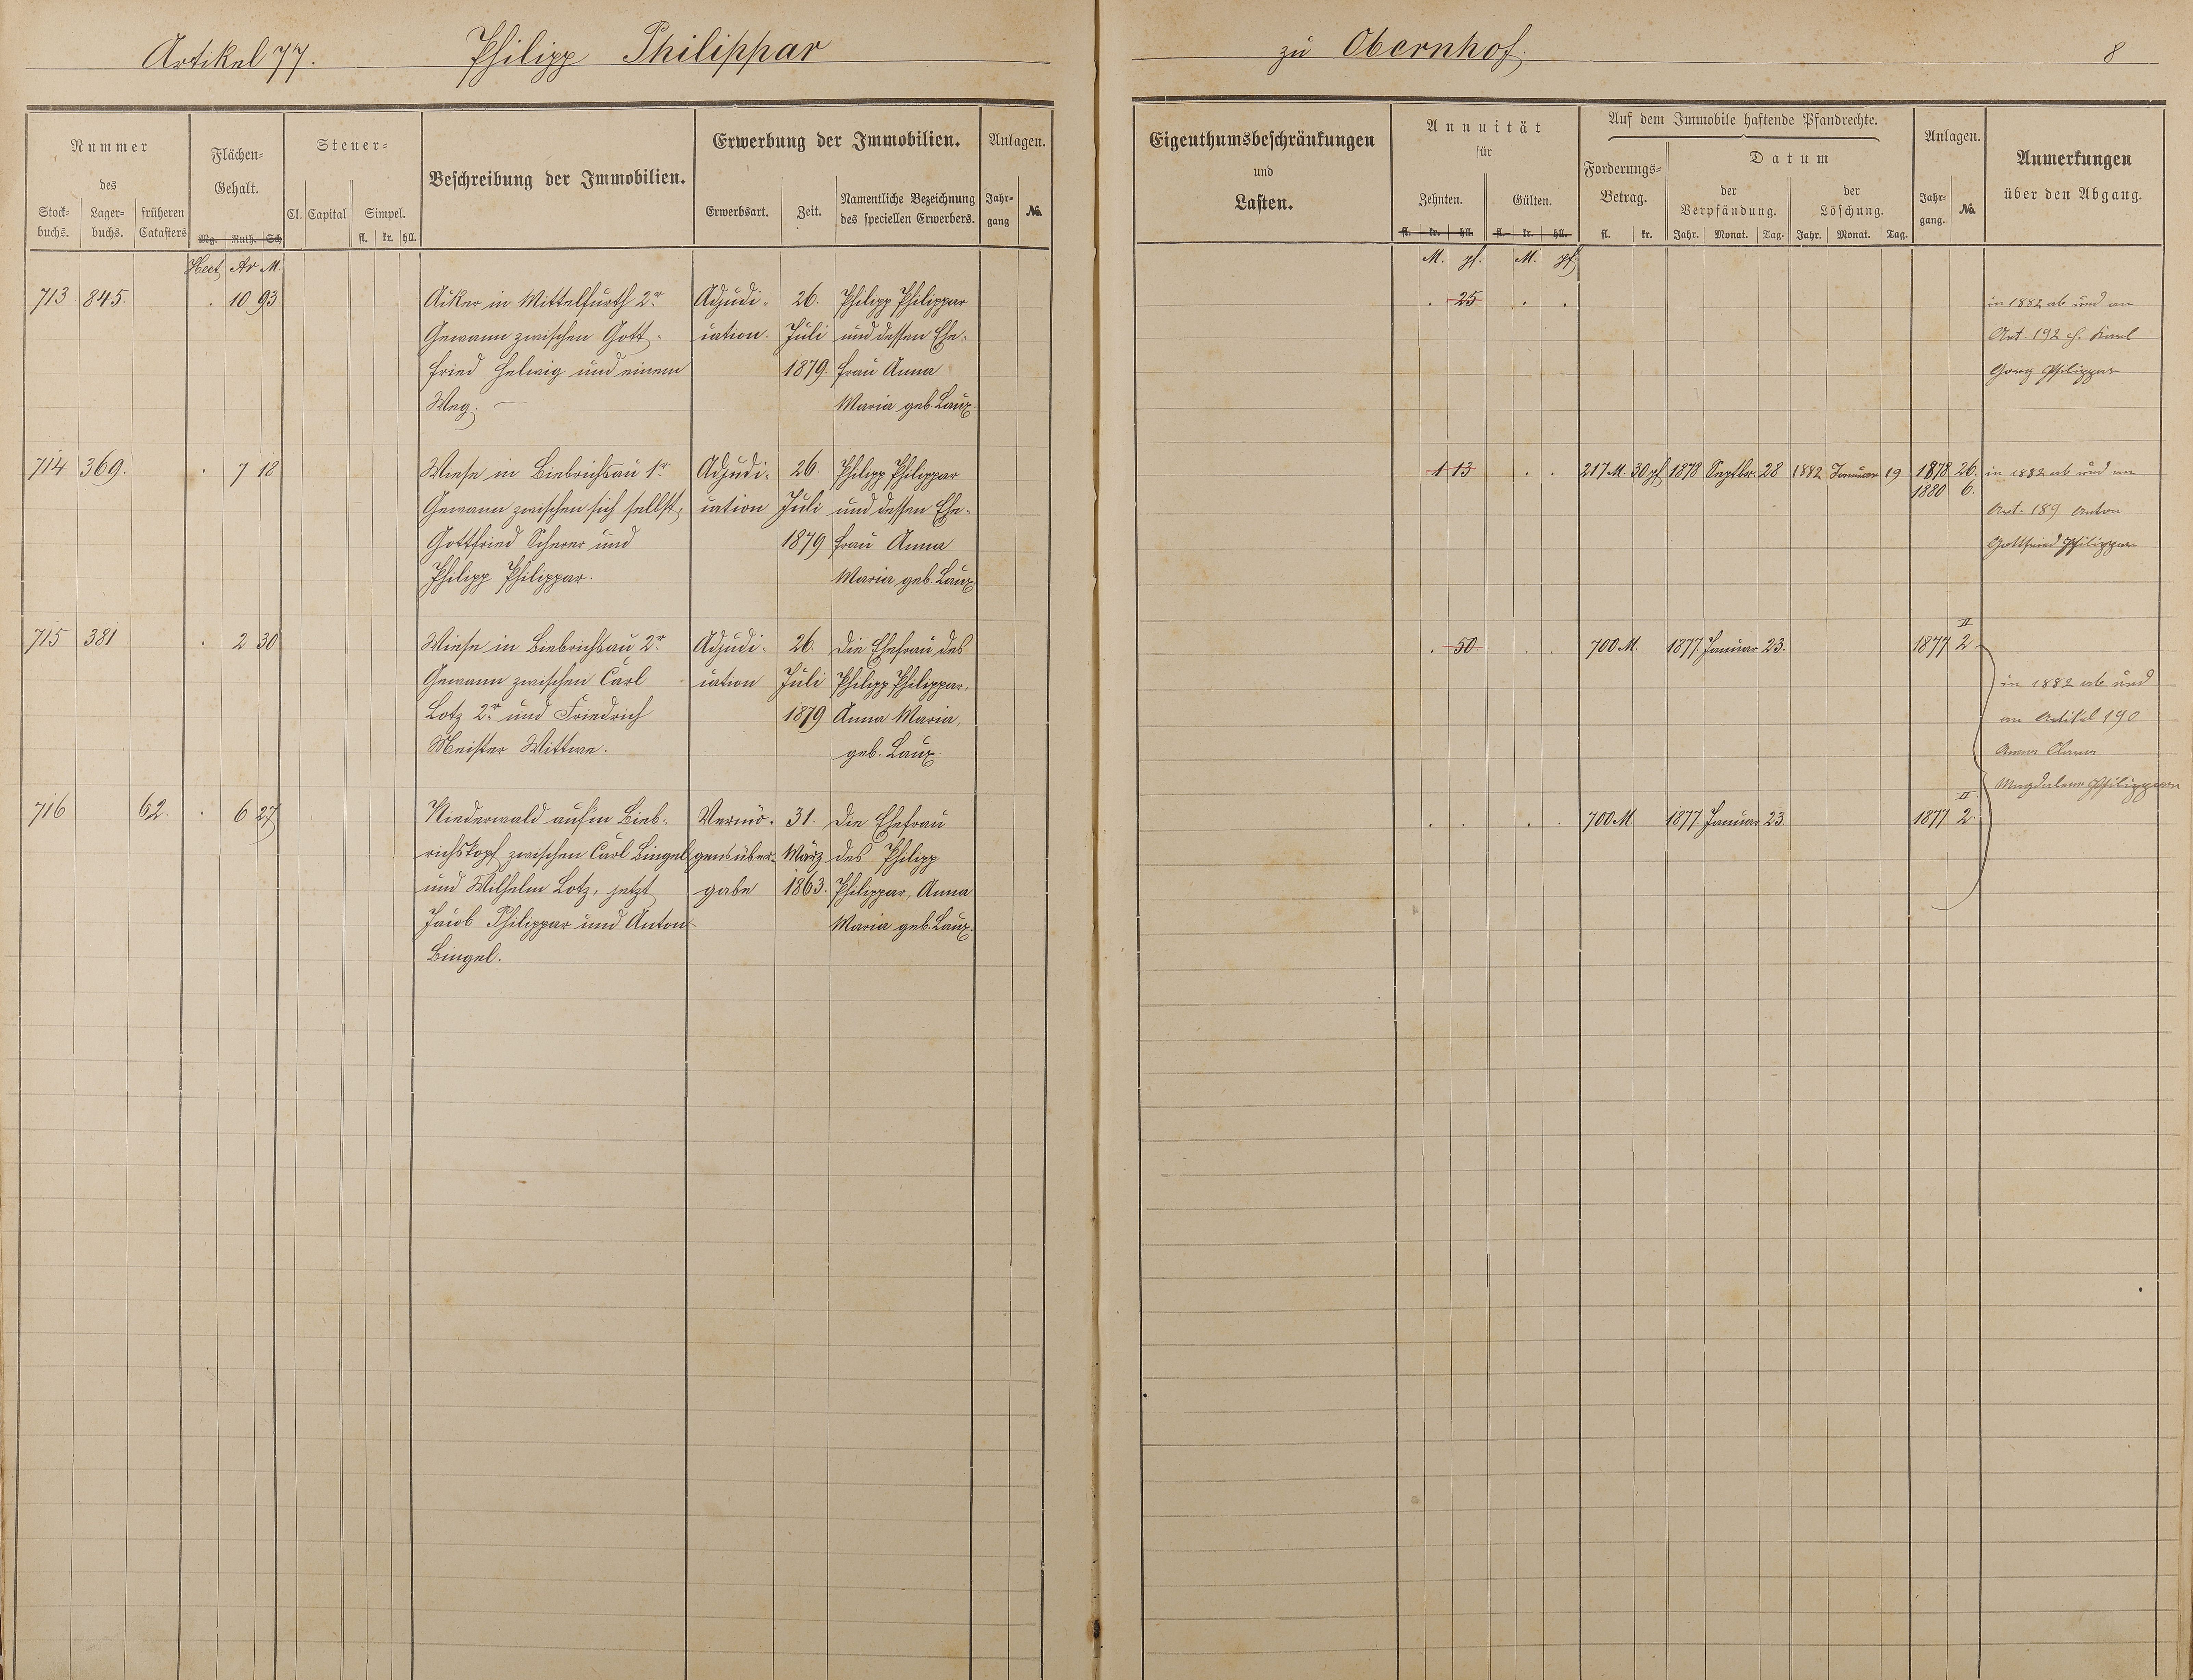 Artikel 77. Philipp Philippar zu Obernhof. 8
Nummer
des
Stock-
buchs.
Lager-
buchs.
früheren
Catasters
Flächen-
Gehalt.
Mg. Ruth. Sch
Steuer-
Cl. Capital Simpel.
fl. kr. hll.
Beschreibung der Immobilien.
Erwerbung der Immobilien.
Erwerbsart. Zeit.
Namentliche Bezeichnung
des speciellen Erwerbers.
Anlagen.
Jahr-
gang
No.
Eigenthumsbeschränkungen
und
Lasten.
Annuität
für
Zehnten. Gülten.
fl. kr. hll. fl. kr. hll.
Auf dem Immobile haftende Pfandrechte.
Forderungs-
Betrag.
fl. kr.
Datum
der
Verpfändung.
der
Löschung.
Jahr. Monat. Tag. Jahr. Monat. Tag.
Anlagen.
Jahr-
gang.
No.
Anmerkungen
über den Abgang.
Hect Ar M. M. pf. M. pf.
713 845. . 10 93
Acker in Mittelfurth 2r
Gewann zwischen Gott-
fried Helwig und einem
Weg. —
Adjudi-
cation.
26.
Juli
1879.
Philipp Philippar
und dessen Ehe-
frau Anna
Maria geb. Laux.
. 25 . .
in 1882 ab und an
Art. 192 Karl
Georg Philippar
714 369. . 7 18
Wiese in Biebrichsau 1r
Gewann zwischen sich selbst,
Gottfried Scherer und
Philipp Philippar.
Adjudi-
cation
26.
Juli
1879
Philipp Philippar
und dessen Ehe-
frau Anna
Maria geb. Laux
1 13 . . 217 M. 30 pf 1878 Septbr. 28 1882 Januar 19 1878 26.
1880 6.
in 1882 ab und an
Art. 189 Anton
Gottfried Philippar
715 381 . 2 30
Wiese in Biebrichsau 2r
Gewann zwischen Carl
Lotz 2r und Friedrich
Meister Wittwe.
Adjudi-
cation
26.
Juli
1879
Die Ehefrau des
Philipp Philippar,
Anna Maria,
geb. Laux.
. 50 . . 700 M. 1877. Januar 23. 1877 II 2
in 1882 ab und
an Artikel 190
Anna
Magdalena Philippar
716 62. . 6 27
Niederwald auf'm Bieb-
richskopf zwischen Carl Bingel
und Wilhelm Lotz, jetzt
Jacob Philippar und Anton
Bingel.
Vermö-
gensüber-
gabe
31.
März
1863.
Die Ehefrau
des Philipp
Philippar, Anna
Maria geb. Laux.
. . . . 700 M. 1877 Januar 23. 1877 II 2